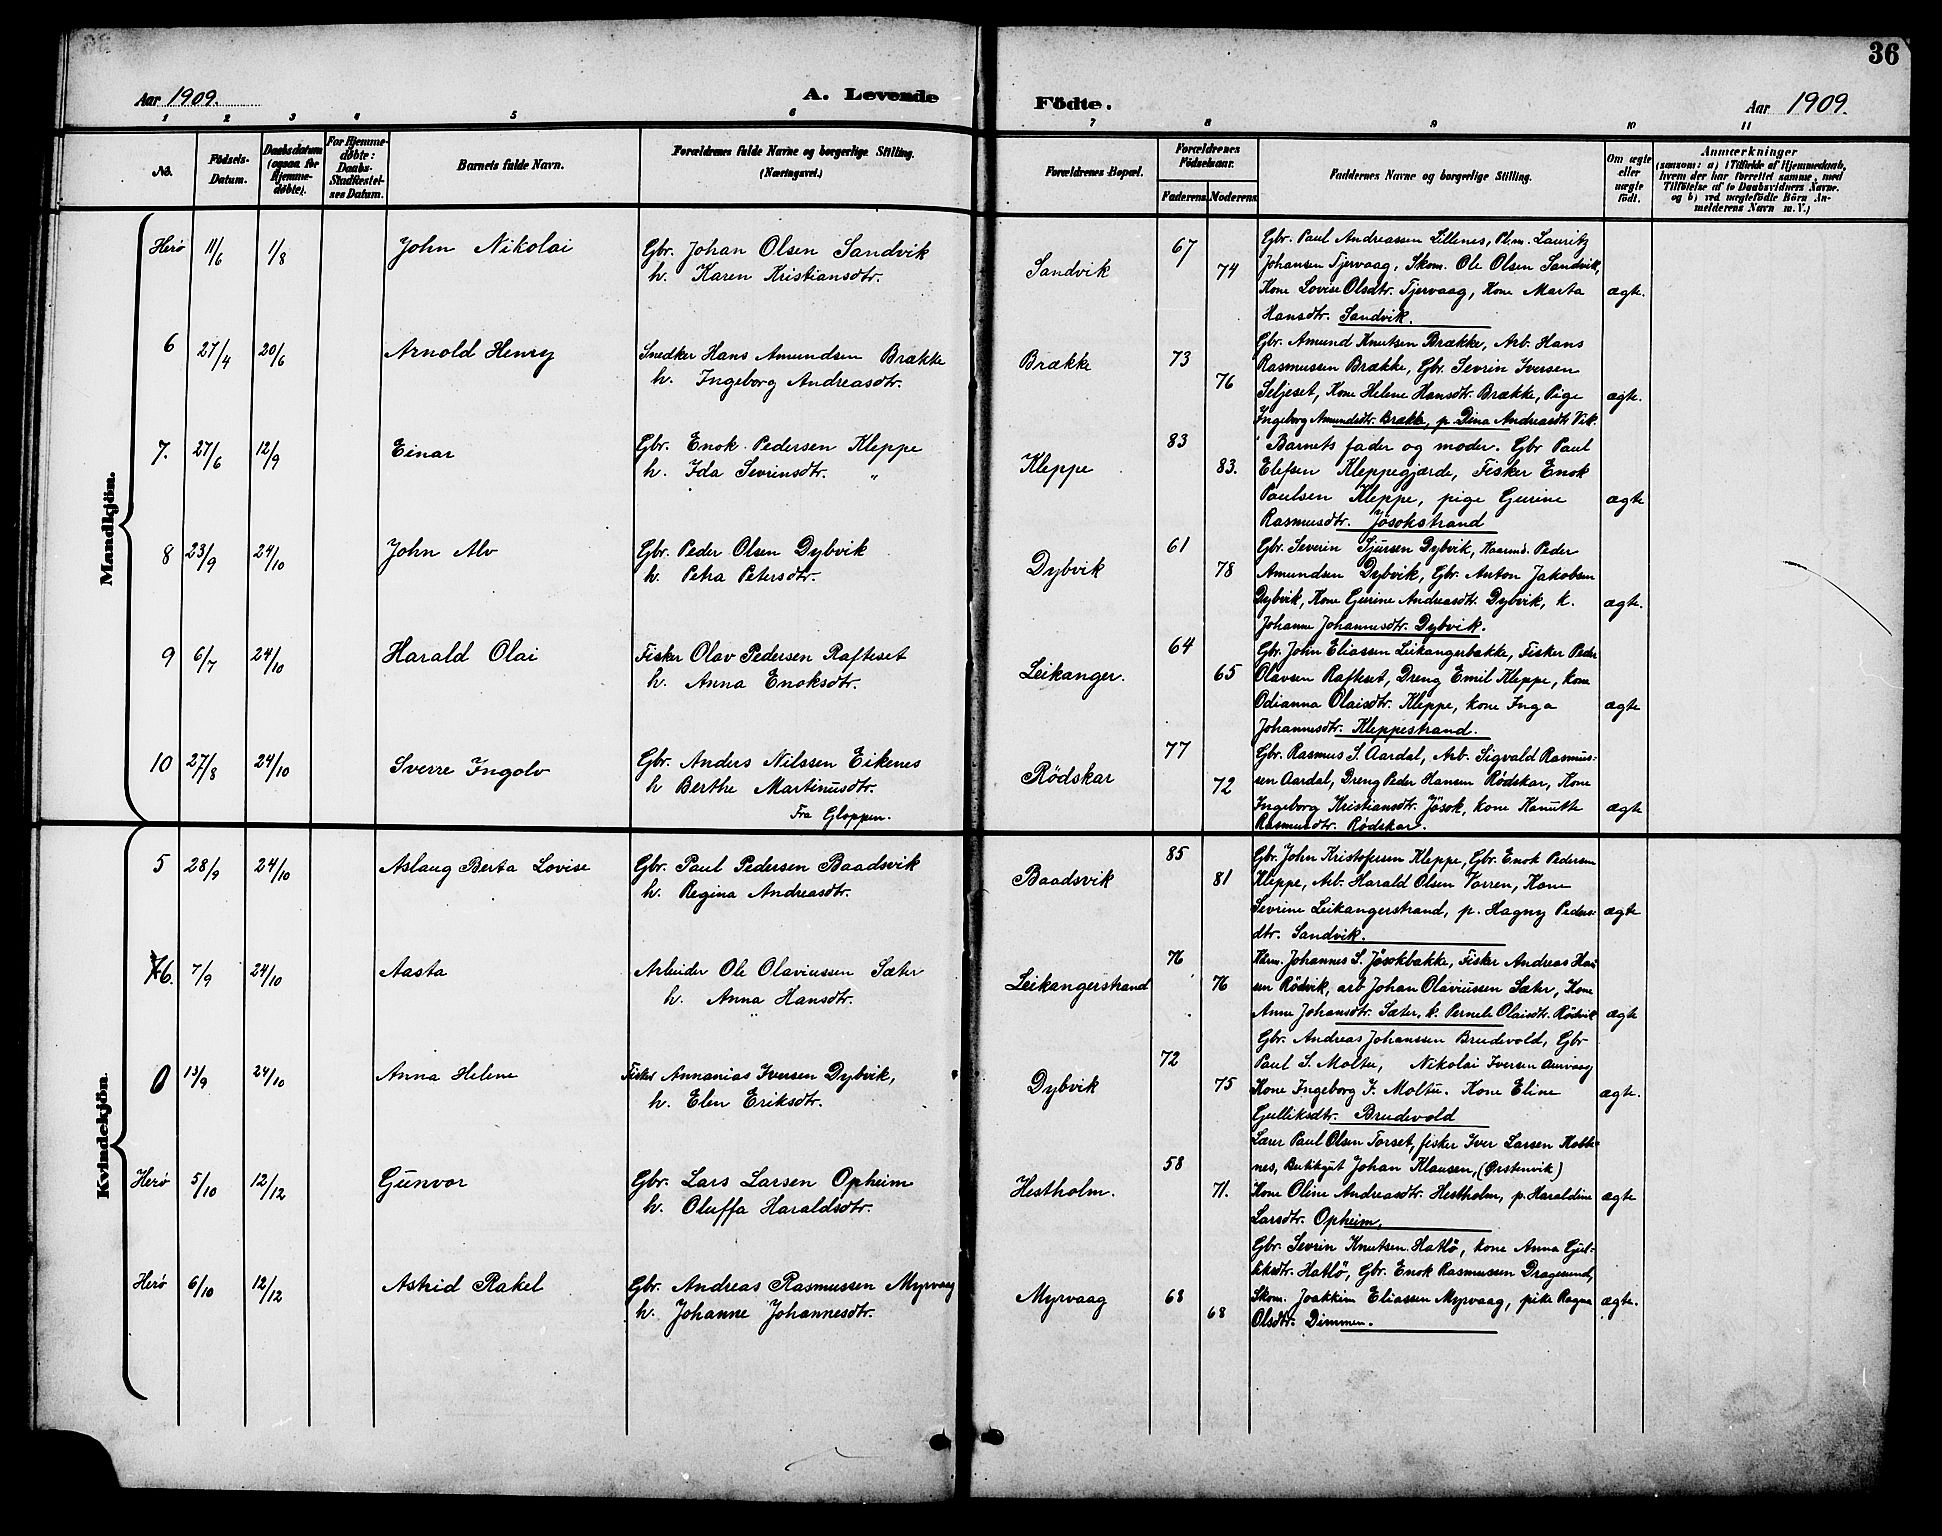 36
Aar 1909.
A. Levende
Födte.
Aar 1909.
1 2 3 4 5 6 7 8 9 10 11
No.
Födsels-
Datum.
Daabsdatum
(ogsaa for
Hjemme-
døbte).
For Hjemme-
døbte:
Daabs-
Stadfæstel-
ses Datum.
Barnets fulde Navn.
Forældrenes fulde Navne og borgerlige Stilling.
(Næringsvei.)
Forældrenes Bopæl.
Forældrenes
Födselsaar.
Faderens
Moderens
Faddernes Navne og borgerlige Stilling.
Om ægte
eller
uægte
født.
Anmærkninger
(saasom: a) i Tilfælde af Hjemmedaab,
hvem der har forrettet samme, med
Tilföielse af to Daabsvidners Navne.
og b) ved uægtefödte Börn An-
melderens Navn m. V.)
Mandkjön.
Herø 11/6 1/8 John Nikolai
Gbr. Johan Olsen Sandvik
h. Karen Kristiansdtr.
Sandvik 67 74
Gbr. Paul Andreassen Lillenes, Pl.m. Lauritz
Johansen Tjervaag, Skom. Ole Olsen Sandvik,
Kone Lovise Olsdtr. Tjervaag, Kone Marta
Hansdtr. Sandvik.
ægte.
6 27/4 20/6 Arnold Henry
Snedker Hans Amundsen Brække
h. Ingeborg Andreasdtr.
Brække 73 76
Gbr. Amund Knutsen Brække, Arb. Hans
Rasmussen Brække, Gbr. Sevrin Iversen
Seljeset, Kone Helene Hansdtr. Brække, Pige
Ingeborg Amundsdtr. Brække, p. Dina Andreasdtr. Vik.
ægte.
7. 27/6 12/9 Einar
Gbr. Enok Pedersen Kleppe
h. Ida Sevrinsdtr. "
Kleppe 83 83.
Barnets fader og moder. Gbr Paul
Elefsen Kleppegjærde, Fisker Enok
Paulsen Kleppe, pige Gurine
Rasmusdtr. Jösokstrand
ægte
8 23/9 24/10 John Alv
Gbr. Peder Olsen Dybvik
h. Petra Petersdtr.
Dybvik 61 78
Gbr. Severin Sjursen Dybvik, Kaarmd. Peder
Amundsen Dybvik, Gbr. Anton Jakobsen
Dybvik, Kone Gurine Andreasdtr. Dybvik, k.
Johanne Johannesdtr. Dybvik.
ægte.
9 6/7 24/10 Harald Olai
Fisker Olav Pedersen Rafteset
h. Anna Enoksdtr.
Leikanger. 64 65
Gbr. John Eliassen Leikangerbakke, Fisker Peder
Olavsen Rafteset, Dreng Emil Kleppe, kone
Odianna Olaisdtr. Kleppe, kone Inga
Johannesdtr. Kleppestrand.
ægte
10 27/8 24/10 Sverre Ingolv
Gbr. Anders Nilssen Eikenes
h Berthe Martinusdtr.
Fra Gloppen.
Rödskar 77 72
Gbr. Rasmus S. Aardal, Arb. Sigvald Rasmus-
sen Aardal, Dreng Peder Hansen Rödskar, Kone
Ingeborg Kristiansdtr. Jösok, kone Kanutte
Rasmusdtr. Rödskar.
ægte
Kvindekjön.
5 28/9 24/10 Aslaug Berta Lovise
Gbr. Paul Pedersen Baadsvik
h. Regina Andreasdtr.
Baadsvik 85 81
Gbr. John Kristofersen Kleppe, Gbr. Enok Pedersen
Kleppe, Arb. Harald Olsen Vorren, Kone
Sevrine Leikangerstrand, p. Hagny Peders-
dtr. Sandvik.
ægte
6. 7/9 24/10 Aasta
Arbeider Ole Olaviussen Sæter
h. Anna Hansdtr.
Leikangerstrand 76 76
Johannes S. Jösokbakke, Fisker Andreas Han-
sen Rödvik, arb Johan Olaviussen Sæter, Kone
Anne Johansdtr. Sæter, k. Pernele Olaisdtr. Rödvik
ægte
0 13/9 24/10 Anna Helene
Fisker Annanias Iversen Dybvik,
h. Elen Eriksdtr.
Dybvik 72 75
Gbr. Andreas Johanssen Brudevold, Gbr
Paul S. Moltu, Nikolai Iversen Aurvaag
Kone Ingeborg J. Moltu. Kone Eline
Gulliksdtr. Brudevold
ægte.
Herø 5/10 12/12 Gunvor
Gbr. Lars Larsen Opheim
h. Oluffa Haraldsdtr.
Hestholm. 58 71.
Lærer Paul Olsen Torset, fisker Iver Larsen Kobbe-
nes, Butikgut Johan Klausen, (Ørstenvik)
Kone Oline Andreasdtr. Hestholm, p. Haraldine
Larsdtr. Opheim,
ægte
Herø 6/10 12/12 Astrid Rakel
Gbr. Andreas Rasmussen Myrvaag
h. Johanne Johannesdtr.
Myrvaag 68 68
Gbr. Sevrin Knutsen Hatlö, kone Anna Gul-
liksdtr. Hatlö, Gbr. Enok Rasmussen Dragesund,
Skom. Joakkim Eliassen Myrvaag, pike Ragna
Olsdtr. Dimmen.
ægte.